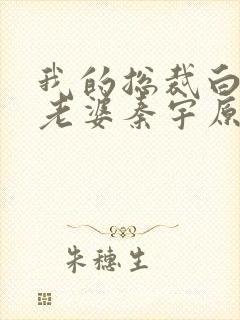 我的总裁白
老婆秦宇原
朱穗生